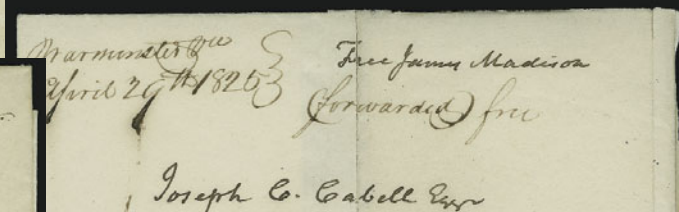 Warminster Va
April 29th 1826
Free James Madison
(forwarded) free
Joseph C. Cabell Esqr